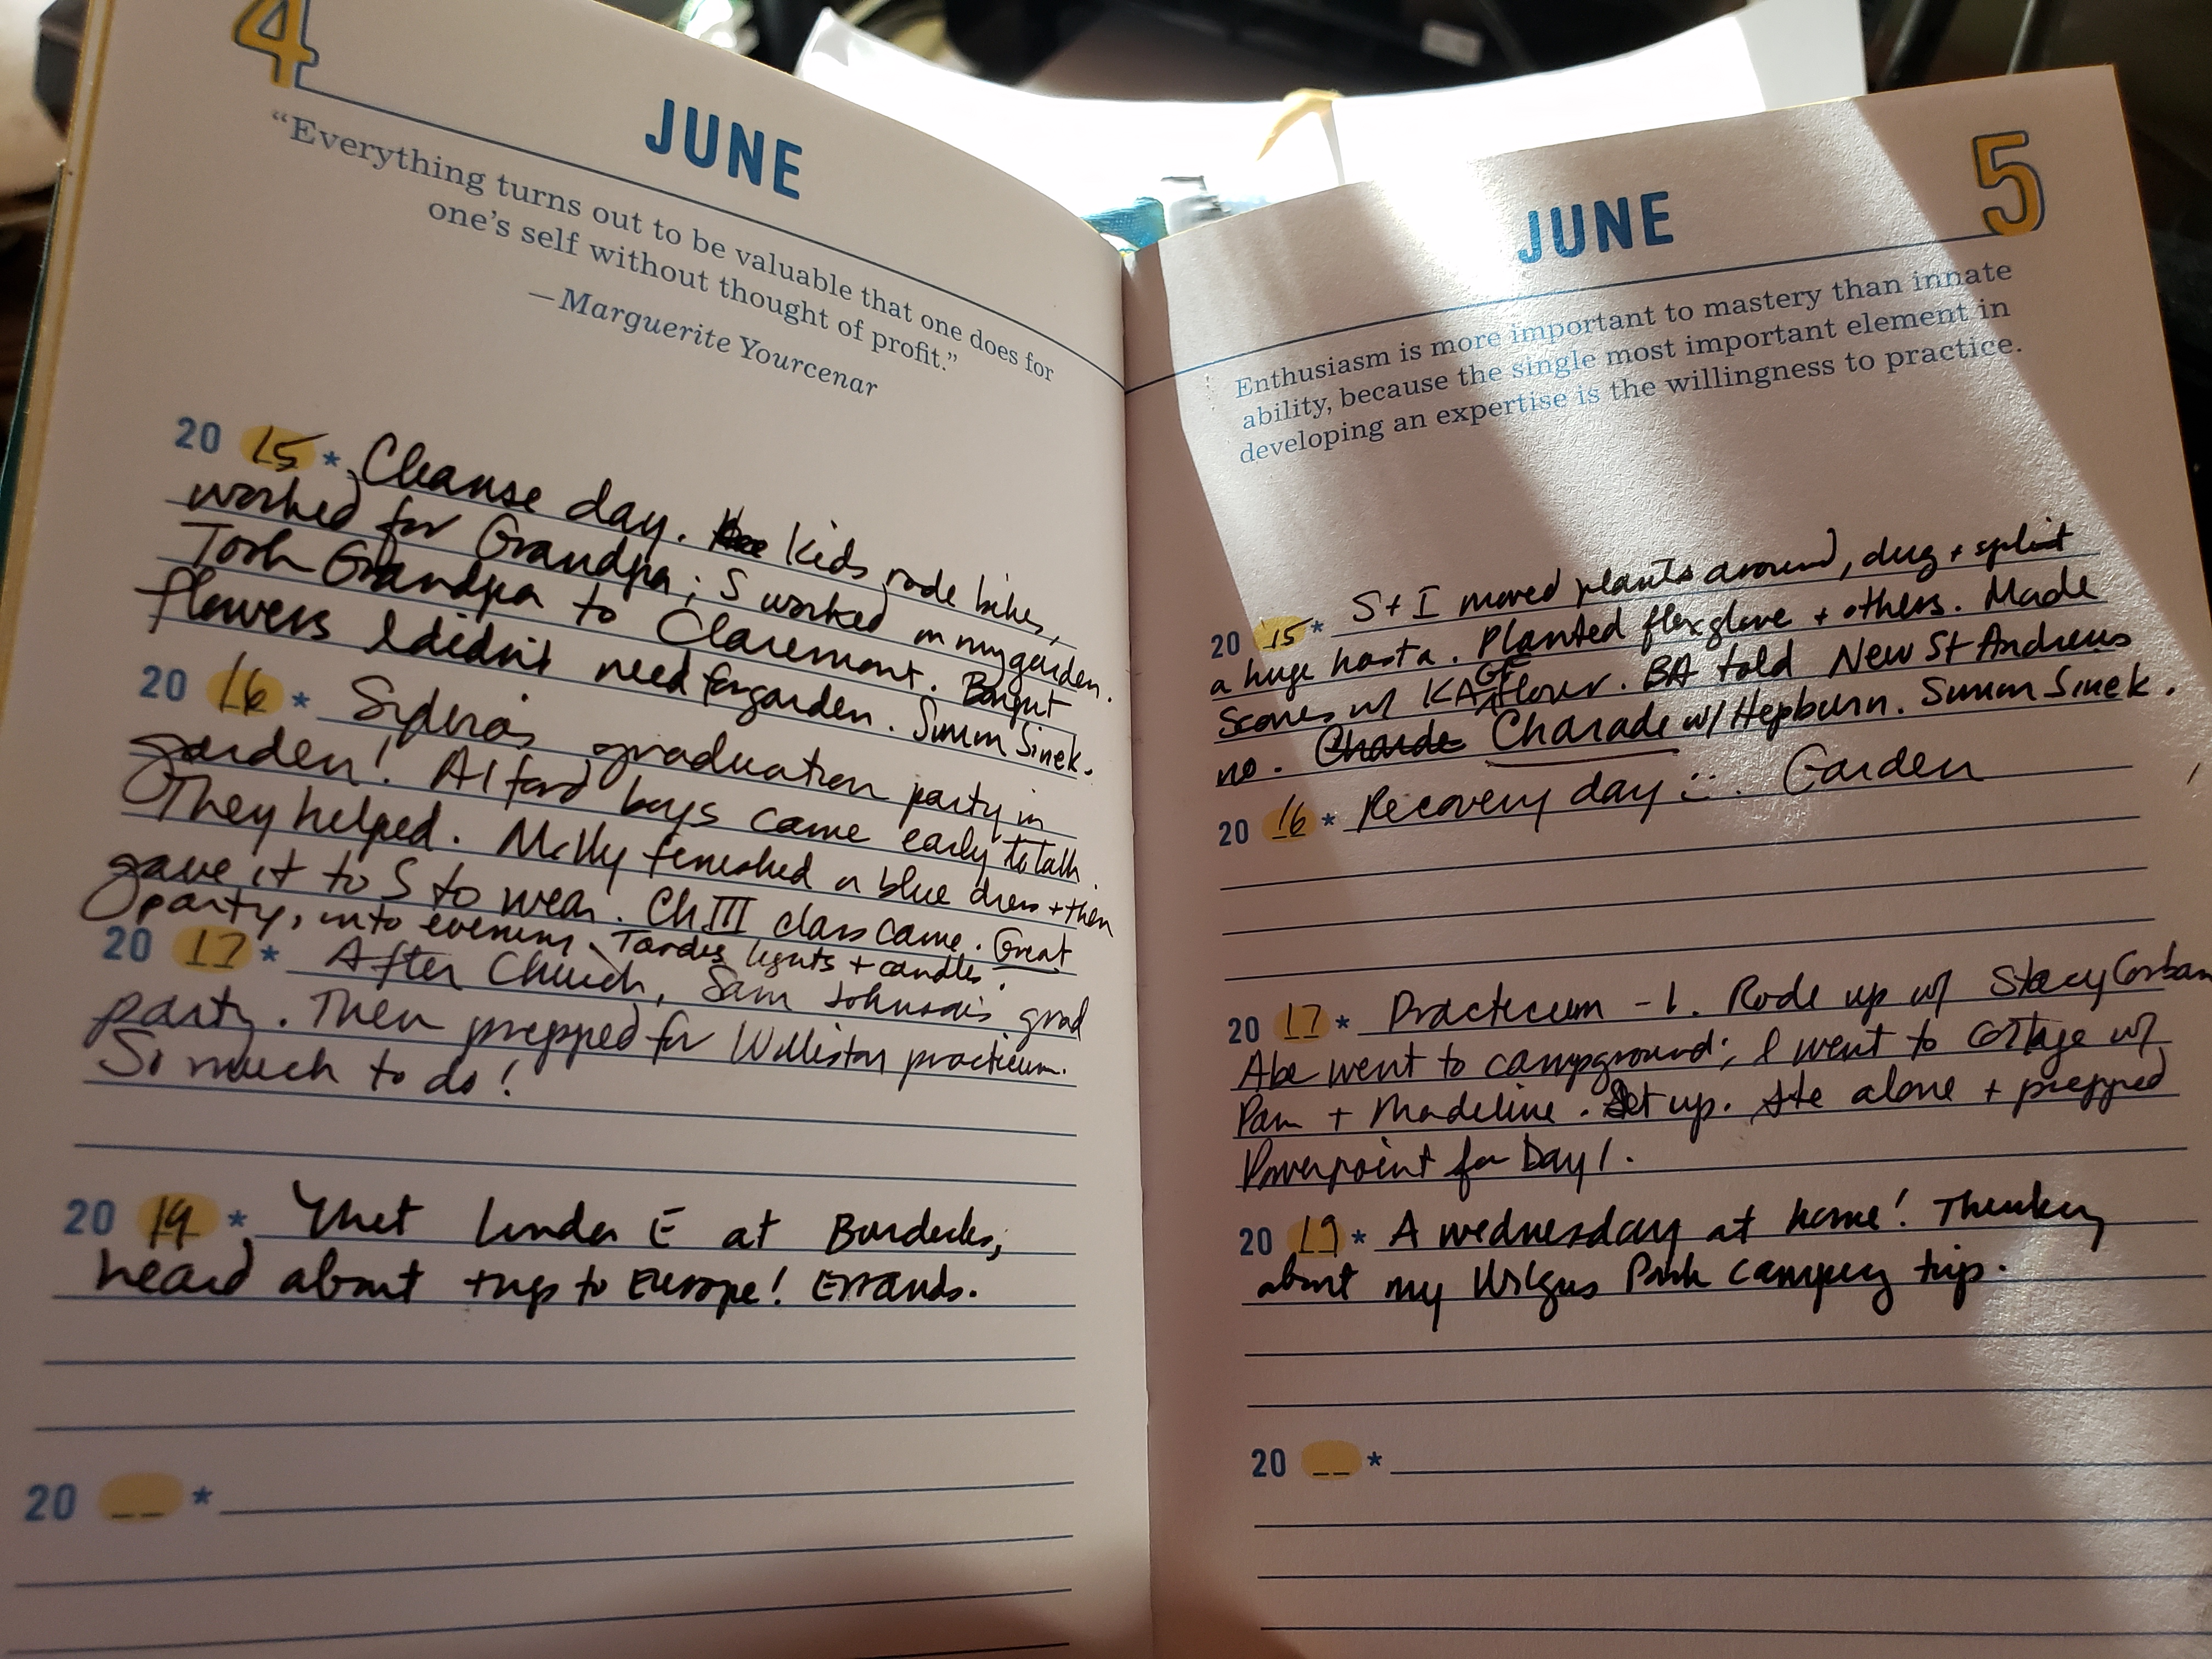 4
JUNE
"Everything turns out to be valuable that one does for
one's self without thought of profit."
—Marguerite Yourcenar
20 15 * Cleanse day. Kids rode bikes,
worked for Grandpa; S worked in my garden.
Took Grandpa to Claremont. Bought
flowers I didn't need for garden. Simon Sinek.
20 16 * graduation party in
garden! Alford boys came early to talk.
They helped. Milly finished a blue dress + then
gave it to S to wear. Ch III class came. Great
party, into evening. Tardis lights + candles.
20 17 * After Church, Sam Johnson's grad
party. Then prepped for Williston practicum.
So much to do!
20 19 * Met Linda E at
heard about trips to Europe! Errands.
20 __ *
JUNE
5
Enthusiasm is more important to mastery than innate
ability, because the single most important element in
developing an expertise is the willingness to practice.
20 15 * S + I moved plants around, dug + split
a huge hosta. Planted foxglove + others. Made
Scones w/ KA GF flour. BA told New St Andrews
no. Charde Charade w/ Hepburn. Simon Sinek.
20 16 * Recovery day :). Garden
20 17 * Practicum - 1. Rode up w/ Stacy Corban
Abe went to campground; I went to cottage w/
Pam + Madeline. Set up. Ate alone + prepped
Powerpoint for Day 1.
20 19 * A Wednesday at home! Thinking
about my Park camping trip.
20 __ *